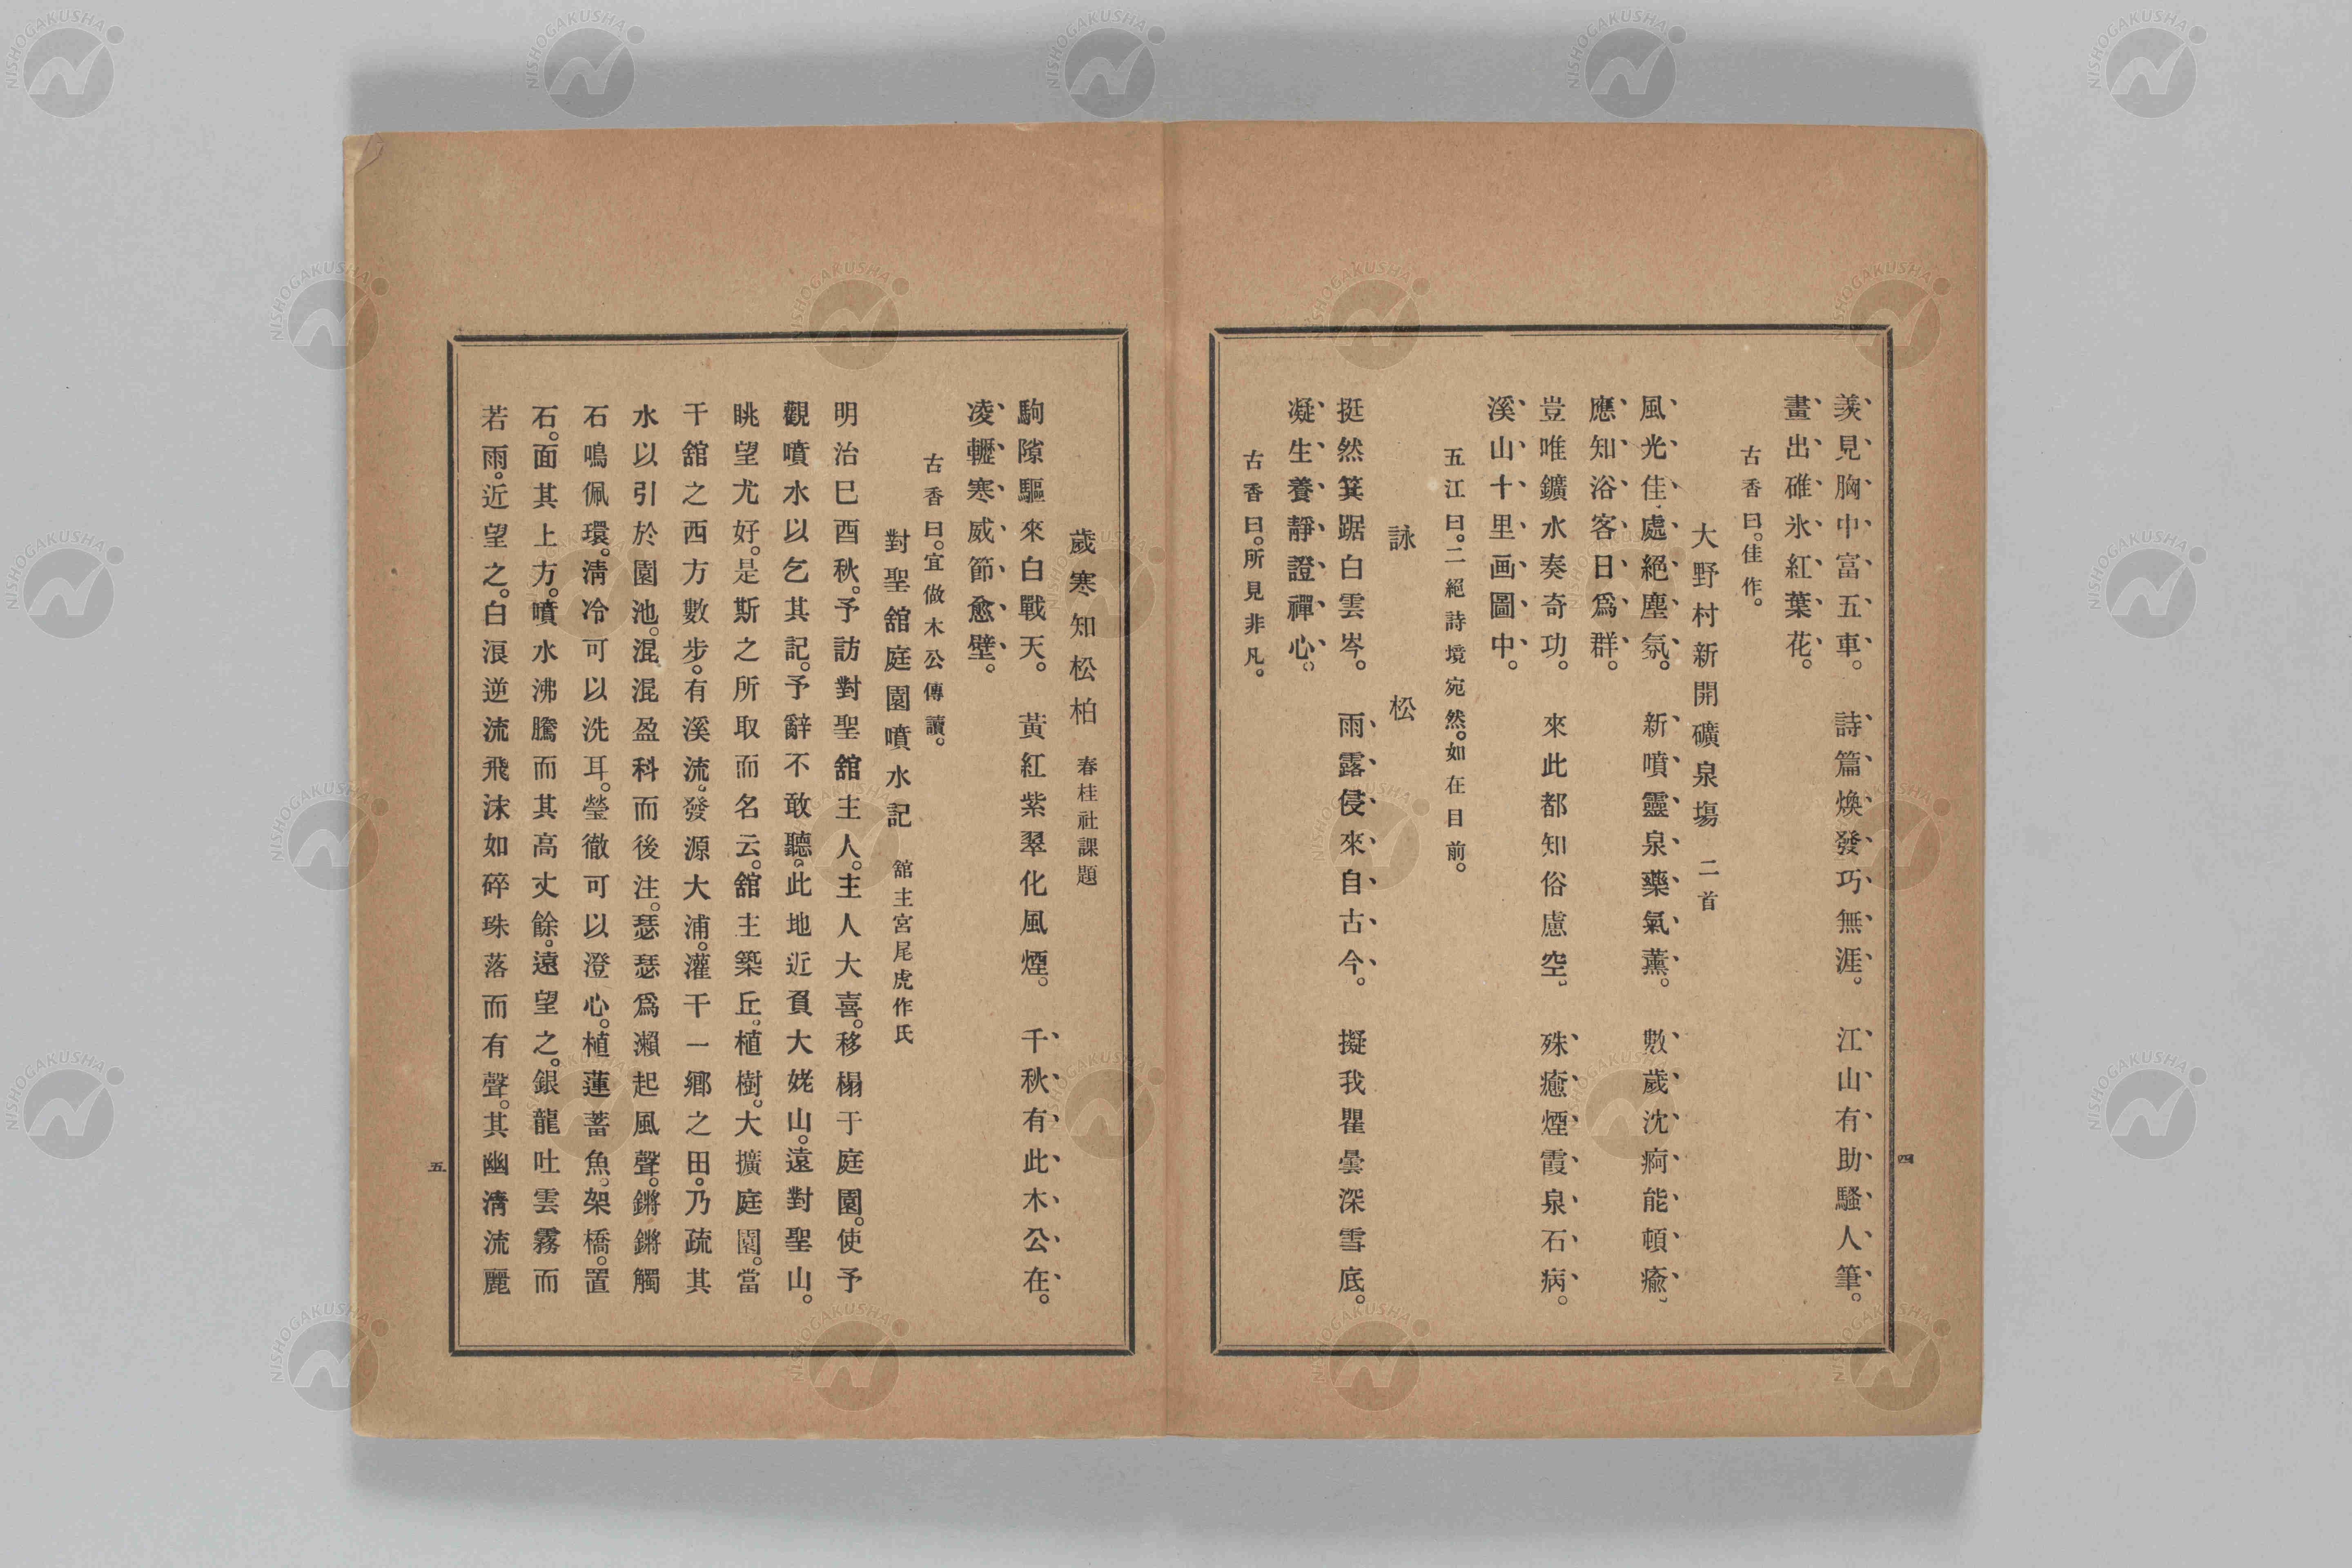 羨見胸中富五車。詩篇煥發巧無涯。江山有助騷人筆。
畫出碓氷紅葉花。
古香曰。佳作。
大野村新開礦泉塲 二首
風光佳處絕塵氛。新噴靈泉藥氣薰。數歲沈痾能頓癒、
應知浴客日爲群。
豈唯鑛水奏奇功。來此都知俗慮空。殊癒煙霞泉石病。
溪山十里画圖中。
五江曰。二絕詩境宛然。如在目前。
詠松
挺然箕踞白雲岑。雨露侵來自古今。擬我瞿曇深雪底。
凝生養靜證禪心。
古香曰。所見非凡。
四
歲寒知松柏 春桂社課題
駒隙驅來白戰天。黃紅紫翠化風煙。千秋有此木公在。
凌轣寒威節愈壁。
古香曰。宜做木公傳讀。
對聖舘庭園噴水記 舘主宮尾虎作氏
明治巳酉秋。予訪對聖舘主人。主人大喜。移榻于庭園。使予
觀噴水以乞其記。予辭不敢聽。此地近負大姥山。遠對聖山。
眺望尤好。是斯之所取而名云。舘主築丘。植樹。大擴庭園。當
干舘之西方數步。有溪流。發源大浦。灌干一鄕之田。乃疏其
水以引於園池。混混盈科而後注。瑟瑟爲瀨起風聲。鏘鏘觸
石鳴佩環。淸冷可以洗耳。瑩徹可以澄心。植蓮蓄魚。架橋。置
石。面其上方。噴水沸騰而其高丈餘。遠望之。銀龍吐雲霧而
若雨。近望之。白浪逆流飛沫如碎珠落而有聲。其幽淸流麗
五
NISHOGAKUSHA